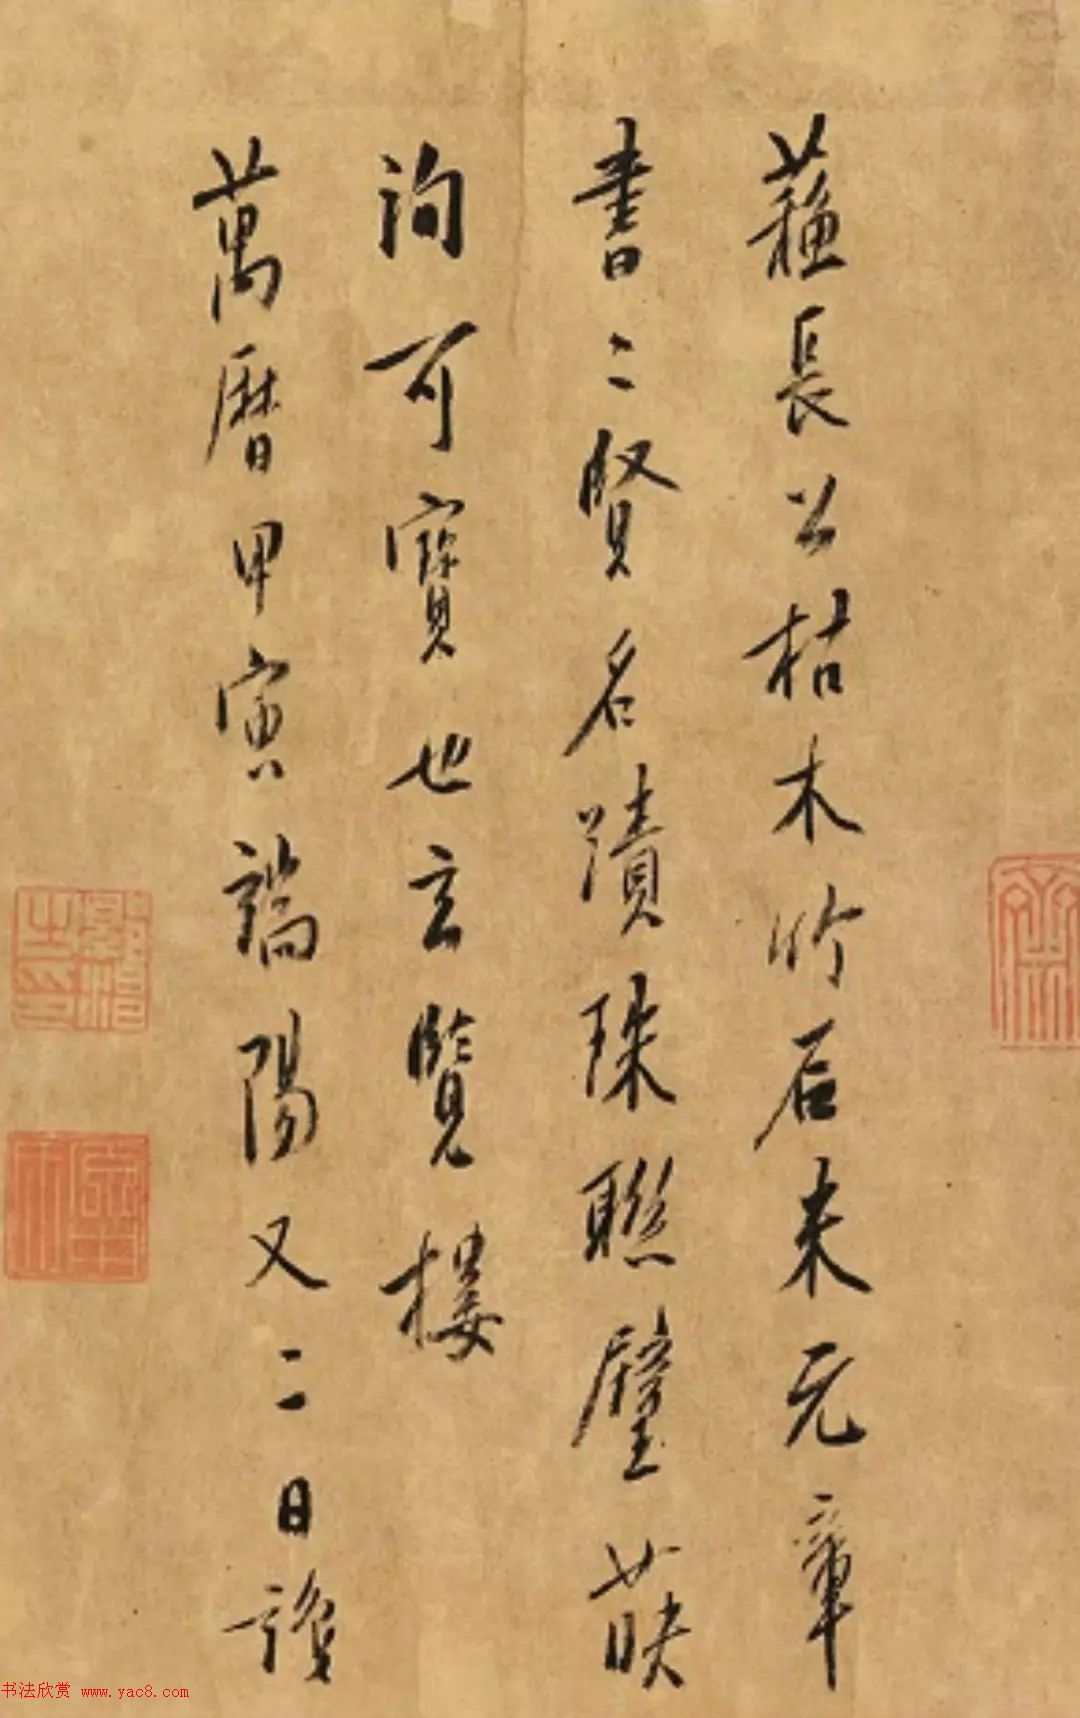 蘓長公枯木竹石米元章
書二賢名蹟珠聯璧暎
洵可寶也玄覽樓
萬曆甲寅端陽又二日識
书法欣赏 www.yac8.com